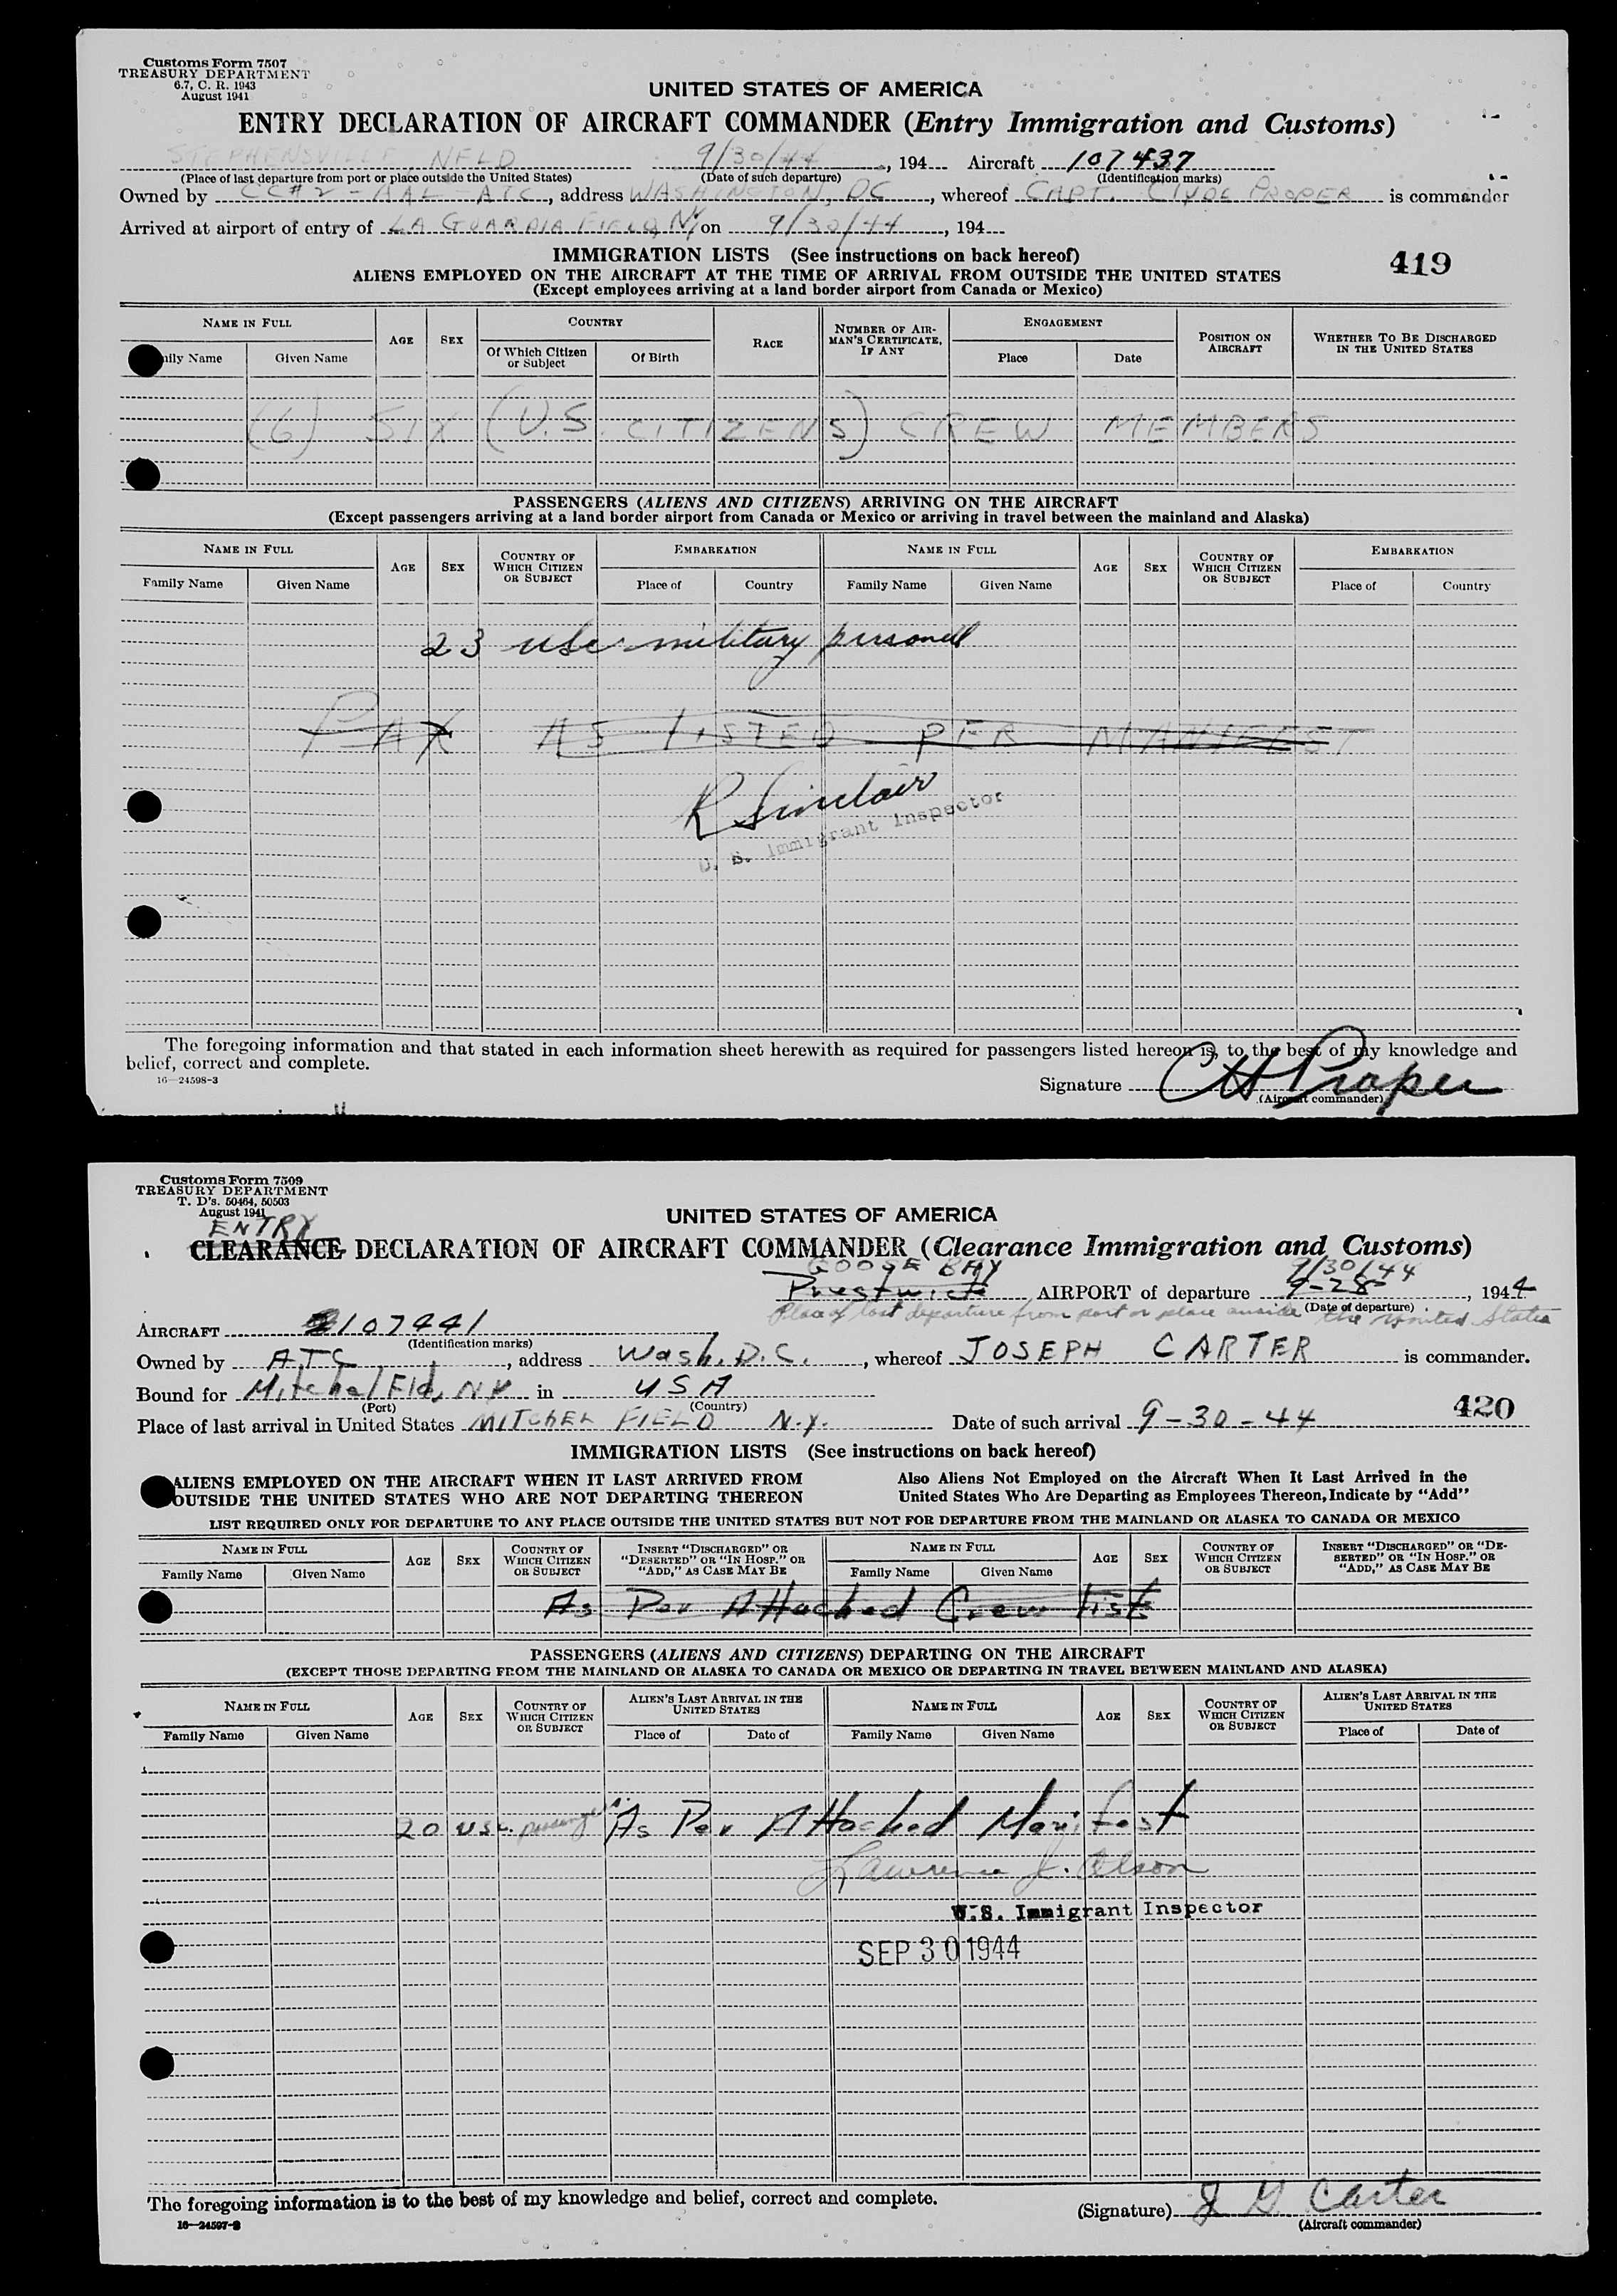 Customs Form 7507
TREASURY DEPARTMENT
6.7, C. R. 1943
August 1941
UNITED STATES OF AMERICA
ENTRY DECLARATION OF AIRCRAFT COMMANDER (Entry Immigration and Customs)
STEPHENSVILLE NFLD 9/30/44, 194 Aircraft 107437
(Place of last departure from port or place outside the United States) (Date of such departure) (Identification marks)
Owned by CC#2 - AAL - ATC, address WASHINGTON, DC, whereof CAPT. CLYDE PROPER is commander
Arrived at airport of entry of LA GUARDIA FIELD, NY on 9/30/44, 194
IMMIGRATION LISTS (See instructions on back hereof)
419
ALIENS EMPLOYED ON THE AIRCRAFT AT THE TIME OF ARRIVAL FROM OUTSIDE THE UNITED STATES
(Except employees arriving at a land border airport from Canada or Mexico)
NAME IN FULL AGE SEX COUNTRY RACE NUMBER OF AIRMAN'S CERTIFICATE, IF ANY ENGAGEMENT POSITION ON AIRCRAFT WHETHER TO BE DISCHARGED IN THE UNITED STATES
ily Name Given Name Of Which Citizen or Subject Of Birth Place Date
(6) SIX (U.S. CITIZENS) CREW MEMBERS
PASSENGERS (ALIENS AND CITIZENS) ARRIVING ON THE AIRCRAFT
(Except passengers arriving at a land border airport from Canada or Mexico or arriving in travel between the mainland and Alaska)
NAME IN FULL AGE SEX COUNTRY OF WHICH CITIZEN OR SUBJECT EMBARKATION NAME IN FULL AGE SEX COUNTRY OF WHICH CITIZEN OR SUBJECT EMBARKATION
Family Name Given Name Place of Country Family Name Given Name Place of Country
23 usc military personell
PAX AS LISTED PER MANIFEST
R Sinclair
U. S. Immigrant Inspector
The foregoing information and that stated in each information sheet herewith as required for passengers listed hereon is, to the best of my knowledge and
belief, correct and complete.
16—24598-3
Signature C H Proper
(Aircraft commander)
Customs Form 7509
TREASURY DEPARTMENT
T. D's. 50464, 50503
August 1941
ENTRY
CLEARANCE DECLARATION OF AIRCRAFT COMMANDER (Clearance Immigration and Customs)
UNITED STATES OF AMERICA
GOOSE BAY 9/30/44
Prestwick AIRPORT of departure 9-28, 1944
Place of last departure from port or place outside the United States (Date of departure)
AIRCRAFT 2107441
(Identification marks)
Owned by ATC, address Wash. D.C., whereof JOSEPH CARTER is commander.
Bound for Mitchel Fld, NY in USA
(Port) (Country)
420
Place of last arrival in United States MITCHEL FIELD N.Y. Date of such arrival 9-30-44
IMMIGRATION LISTS (See instructions on back hereof)
ALIENS EMPLOYED ON THE AIRCRAFT WHEN IT LAST ARRIVED FROM
OUTSIDE THE UNITED STATES WHO ARE NOT DEPARTING THEREON
Also Aliens Not Employed on the Aircraft When It Last Arrived in the
United States Who Are Departing as Employees Thereon, Indicate by "Add"
LIST REQUIRED ONLY FOR DEPARTURE TO ANY PLACE OUTSIDE THE UNITED STATES BUT NOT FOR DEPARTURE FROM THE MAINLAND OR ALASKA TO CANADA OR MEXICO
NAME IN FULL AGE SEX COUNTRY OF WHICH CITIZEN OR SUBJECT INSERT "DISCHARGED" OR "DESERTED" OR "IN HOSP." OR "ADD," AS CASE MAY BE NAME IN FULL AGE SEX COUNTRY OF WHICH CITIZEN OR SUBJECT INSERT "DISCHARGED" OR "DESERTED" OR "IN HOSP." OR "ADD," AS CASE MAY BE
Family Name Given Name Family Name Given Name
As Per Attached Crew List
PASSENGERS (ALIENS AND CITIZENS) DEPARTING ON THE AIRCRAFT
(EXCEPT THOSE DEPARTING FROM THE MAINLAND OR ALASKA TO CANADA OR MEXICO OR DEPARTING IN TRAVEL BETWEEN MAINLAND AND ALASKA)
NAME IN FULL AGE SEX COUNTRY OF WHICH CITIZEN OR SUBJECT ALIEN'S LAST ARRIVAL IN THE UNITED STATES NAME IN FULL AGE SEX COUNTRY OF WHICH CITIZEN OR SUBJECT ALIEN'S LAST ARRIVAL IN THE UNITED STATES
Family Name Given Name Place of Date of Family Name Given Name Place of Date of
20 usc. passengers. As Per Attached Manifest
Lawrence J. Olson
U.S. Immigrant Inspector
SEP 30 1944
The foregoing information is to the best of my knowledge and belief, correct and complete.
16—24597-3
(Signature) J G Carter
(Aircraft commander)